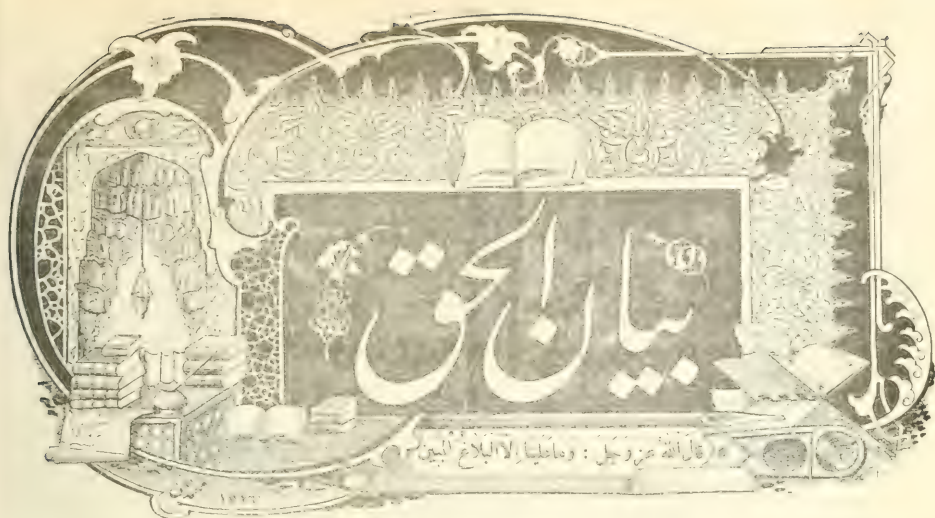 بيان الحق
قال الله عز وجل : وما علينا إلا البلاغ المبين